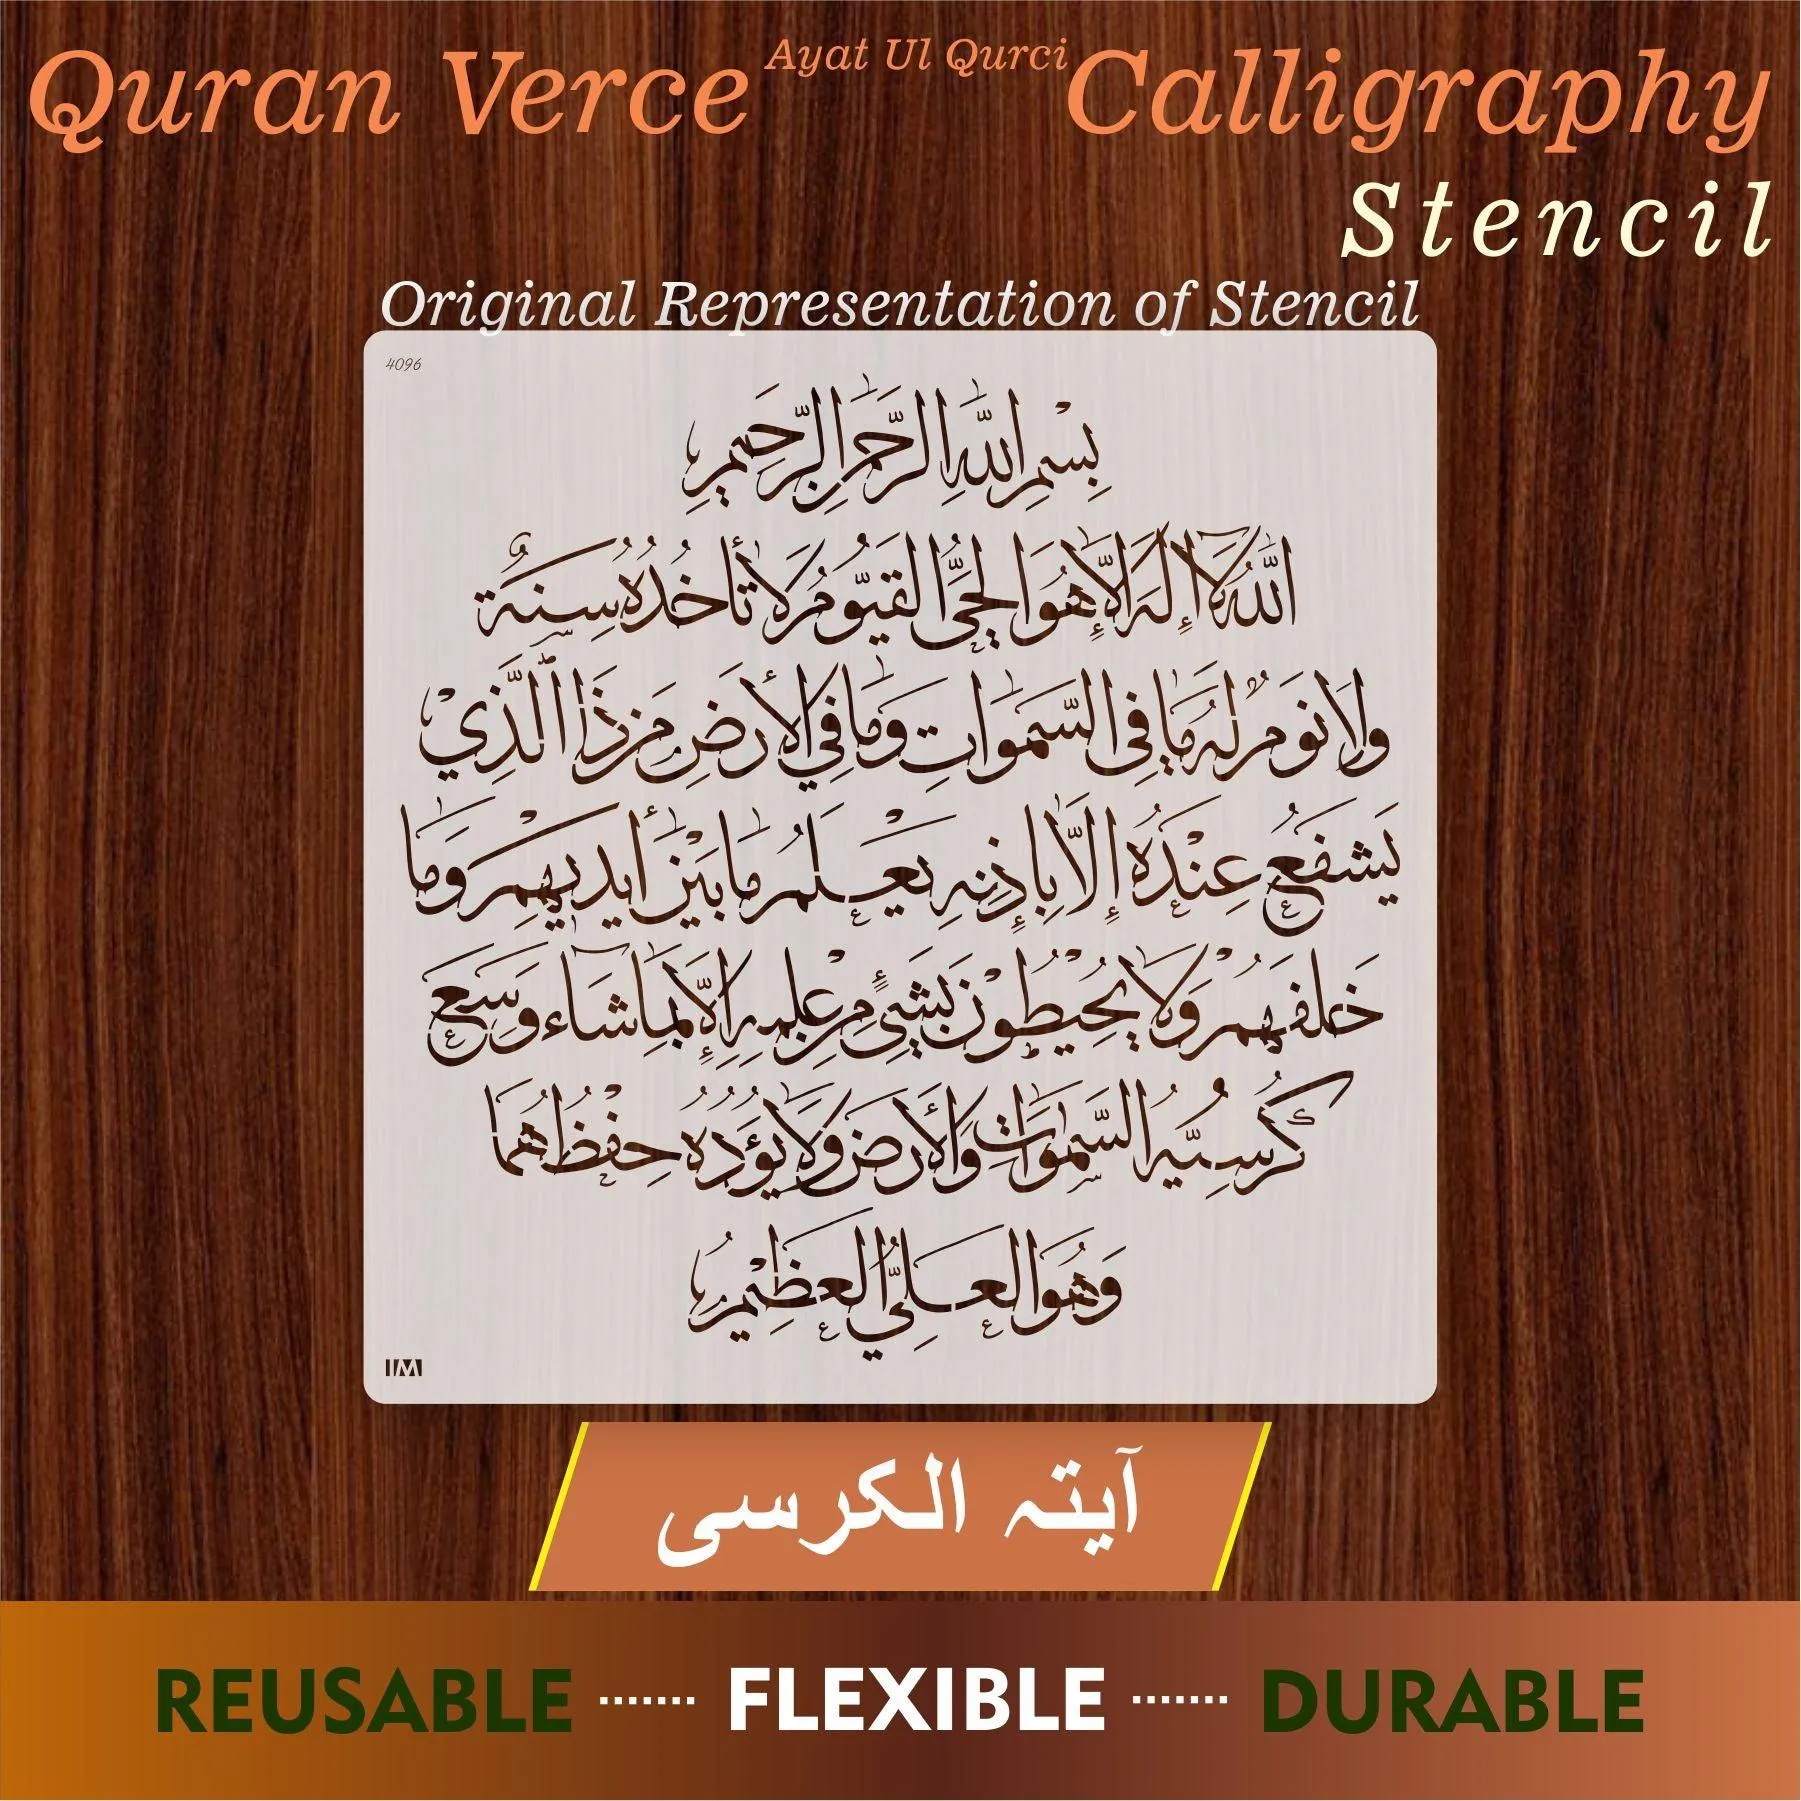 Quran Verce Ayat Ul Qurci Calligraphy
Stencil
Original Representation of Stencil
4096
بِسْمِ اللَّهِ الرَّحْمَٰنِ الرَّحِيمِ
اللَّهُ لَا إِلَهَ إِلَّا هُوَ الْحَيُّ الْقَيُّومُ لَا تَأْخُذُهُ سِنَةٌ
وَلَا نَوْمٌ لَهُ مَا فِي السَّمَوَاتِ وَمَا فِي الْأَرْضِ مَن ذَا الَّذِي
يَشْفَعُ عِنْدَهُ إِلَّا بِإِذْنِهِ يَعْلَمُ مَا بَيْنَ أَيْدِيهِمْ وَمَا
خَلْفَهُمْ وَلَا يُحِيطُونَ بِشَيْءٍ مِنْ عِلْمِهِ إِلَّا بِمَا شَاءَ وَسِعَ
كُرْسِيُّهُ السَّمَوَاتِ وَالْأَرْضَ وَلَا يَؤُدُهُ حِفْظُهُمَا
وَهُوَ الْعَلِيُّ الْعَظِيمُ
IIM
آیتہ الکرسی
REUSABLE ....... FLEXIBLE ....... DURABLE